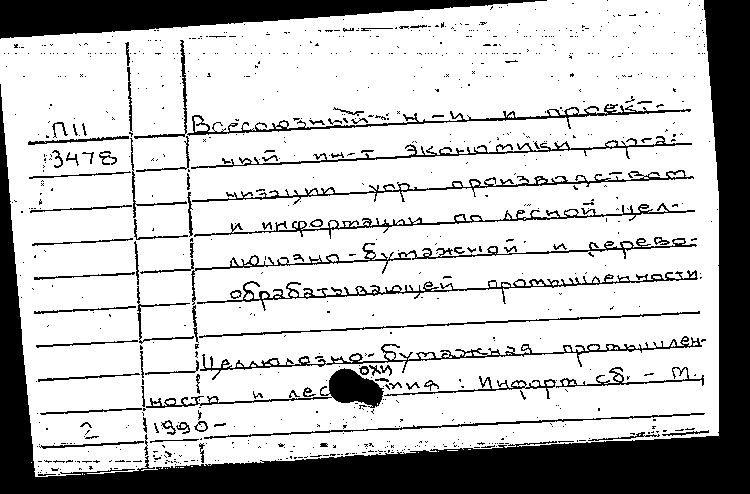 П11
3478
Всесоюзный н.-и. и проект-
ный ин-т экономики, орга-
низации упр. производством
и информации по лесной, цел-
люлозно-бумажной и дерево-
обрабатывающей промышленности.
Целлюлозно-бумажная промышлен-
ности и лесохимия : Информ. сб. - М.,
2 1990-